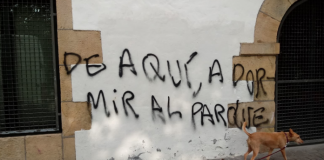 DE AQUÍ, A DOR-
MIR AL PARQUE